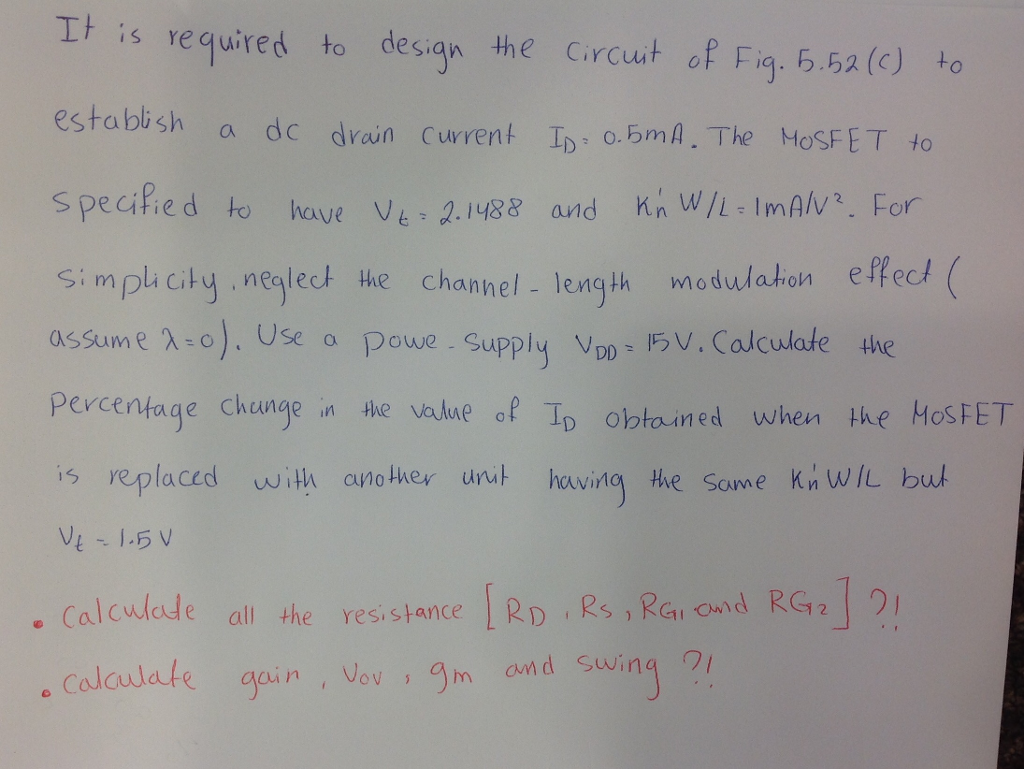 It is required to design the circuit of Fig. 5.52(c) to
establish a dc drain current ID = 0.5mA. The MOSFET to
specified to have Vt = 2.1488 and K'n W/L = 1mA/V². For
simplicity, neglect the channel-length modulation effect (
assume λ=0). Use a powe-supply VDD = 15V. Calculate the
percentage change in the value of ID obtained when the MOSFET
is replaced with another unit having the same K'n W/L but
Vt = 1.5 V
• Calculate all the resistance [RD, Rs, RG1 and RG2] ?!
• Calculate gain, Vov, gm and swing ?!